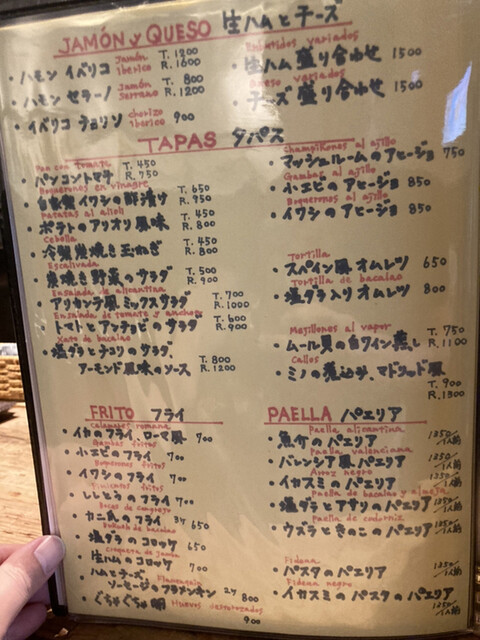 JAMÓN y QUESO 生ハムとチーズ
Jamón iberico
・ハモン イベリコ T. 1200 R. 1600
Jamón serrano
・ハモン セラーノ T. 800 R. 1200
chorizo iberico
・イベリコ チョリソ 900
Embutidos variados
・生ハム盛り合わせ 1500
Queso variados
・チーズ盛り合わせ 1500
TAPAS タパス
Pan con tomate
・パンコントマテ T. 450 R. 750
Boquerones en vinagre
・自家製イワシの酢漬け T. 650 R. 950
Patatas al alioli
・ポテトのアリオリ風味 T. 450 R. 800
Cebolla
・冷製炭焼き玉ねぎ T. 450 R. 800
Escalivada
・炭焼き野菜のサラダ T. 500 R. 900
Ensalada de alicantina
・アリカンテ風ミックスサラダ T. 700 R. 1000
Ensalada de tomate y anchoas
・トマトとアンチョビのサラダ T. 600 R. 900
Xato de bacalao
・塩ダラとチコリのサラダ、
アーモンド風味のソース T. 800 R. 1200
Champiñones al ajillo
・マッシュルームのアヒージョ 750
Gambas al ajillo
・小エビのアヒージョ 850
Boquerones al ajillo
・イワシのアヒージョ 850
Tortilla
・スペイン風オムレツ 650
Tortilla de bacalao
・塩ダラ入りオムレツ 800
Mejillones al vapor
・ムール貝の白ワイン蒸し T. 750 R. 1100
Callos
・ミノの煮込み、マドリッド風
T. 900
R. 1300
FRITO フライ
calamares romana
・イカのフライ、ローマ風 700
Gambas fritos
・小エビのフライ 700
Boquerones fritos
・イワシのフライ 700
Pimientos fritos
・ししとうのフライ 700
Bocas de cangrejo
・カニ爪のフライ 3ケ 650
Buñuelo de bacalao
・塩ダラのコロッケ 650
Croqueta de jamón
・生ハムのコロッケ 700
Flamenquin
・ハムとチーズ
ソーセージのフラメンキン 2ケ 800
Huevos estrellados
・ぐちゃぐちゃ卵 900
PAELLA パエリア
Paella alicantina
・魚介のパエリア 1350/1人前
Paella valenciana
・バレンシア風パエリア 1350/1人前
Arroz negro
・イカスミのパエリア 1350/1人前
Paella de bacalao y almeja
・塩ダラとアサリのパエリア 1350/1人前
Paella de codorniz
・ウズラときのこのパエリア 1350/1人前
Fideua
・パスタのパエリア 1350/1人前
Fideua negro
・イカスミのパスタのパエリア 1350/1人前